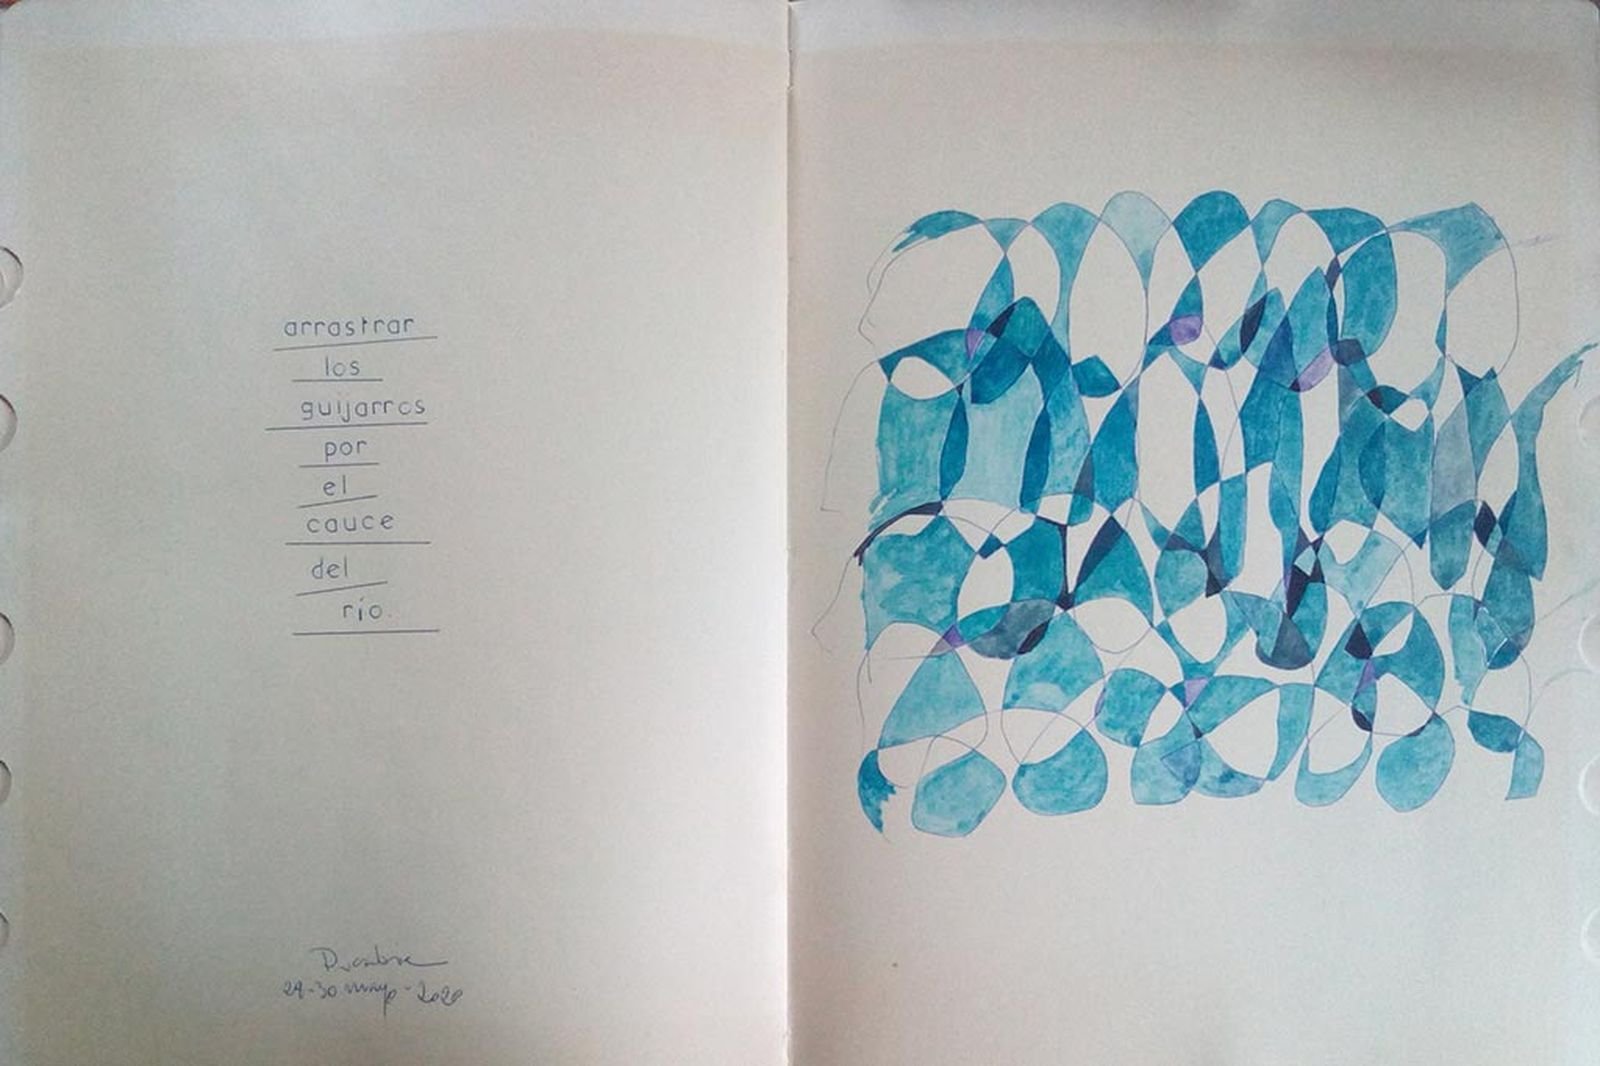 arrastrar
los
guijarros
por
el
cauce
del
río.
29-30 mayo - 2020